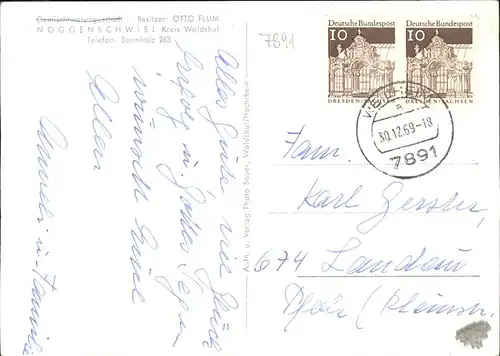 Gemischtwarengeschäft Besitzer: OTTO FLUM
NÖGGENSCHWIEL Kreis Waldshut
Telefon: Bannholz 263
7891
Alles Gute, viel Glück
Erfolg u. Gottes Segen
wünscht Euch
Allen
u. Familie
Aufn. u. Verlag Photo Bauer, Waldshut/Hochrhein
Deutsche Bundespost
10
DRESDEN/SACHSEN
Deutsche Bundespost
10
DRESDEN/SACHSEN
30.12.69-18
7891
Fam.
Karl Gessler,
674 Landau
Pfalz